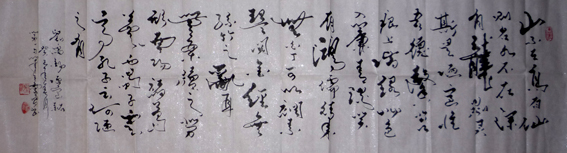 山不在高有仙
则名水不在深
有龍则灵
斯是陋室惟
吾德馨苔
痕上階绿草色
入簾青谈笑
有鸿儒往来
無白丁可以调素
琴阅金经無
丝竹之乱耳
無案牍之劳
形南阳诸葛
廬西蜀子雲
亭孔子云何陋
之有